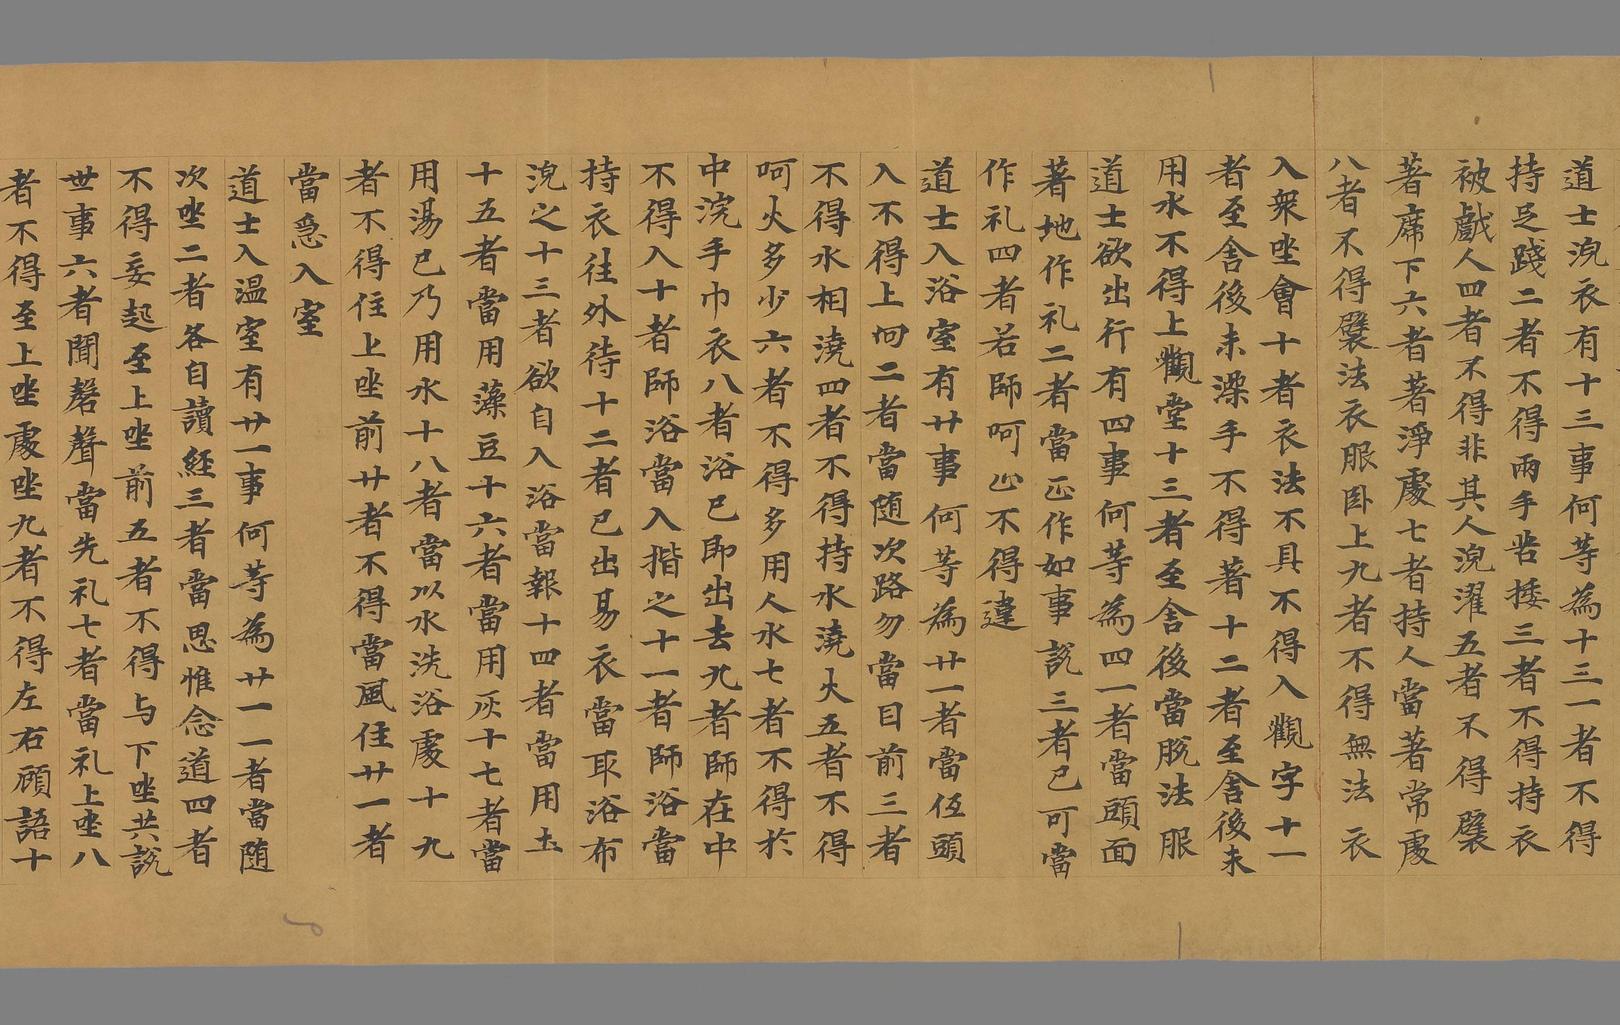 道士浣衣有十三事何等為十三一者不得
持足踐二者不得兩手苦捼三者不得持衣
被戲人四者不得非其人浣濯五者不得襞
著席下六者著淨處七者持人當著常處
八者不得襞法衣服卧上九者不得無法衣
入衆坐會十者衣法不具不得入觀字十一
者至舍後未澡手不得著十二者至舍後未
用水不得上觀堂十三者至舍後當脫法服
道士欲出行有四事何等為四一者當頭面
著地作礼二者當正作如事說三者已可當
作礼四者若師呵止不得違
道士入浴室有廿事何等為廿一者當低頭
入不得上向二者當随次路勿當目前三者
不得水相澆四者不得持水澆火五者不得
呵火多少六者不得多用人水七者不得於
中浣手巾衣八者浴已即出去九者師在中
不得入十者師浴當入揩之十一者師浴當
持衣往外待十二者已出易衣當取浴布
浣之十三者欲自入浴當報十四者當用土
十五者當用藻豆十六者當用灰十七者當
用湯已乃用水十八者當以水洗浴處十九
者不得住上坐前廿者不得當風住廿一者
當急入室
道士入温室有廿一事何等為廿一一者當随
次坐二者各自讀經三者當思惟念道四者
不得妄起至上坐前五者不得与下坐共說
世事六者聞磬聲當先礼七者當礼上坐八
者不得至上坐處坐九者不得左右顧語十